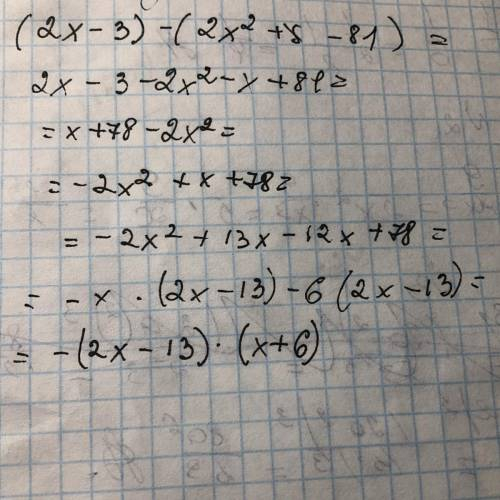 (2x-3)-(2x²+x-81)=
2x-3-2x²-x+81=
=x+78-2x²=
=-2x²+x+78=
=-2x²+13x-12x+78=
=-x·(2x-13)-6(2x-13)=
=-(2x-13)·(x+6)